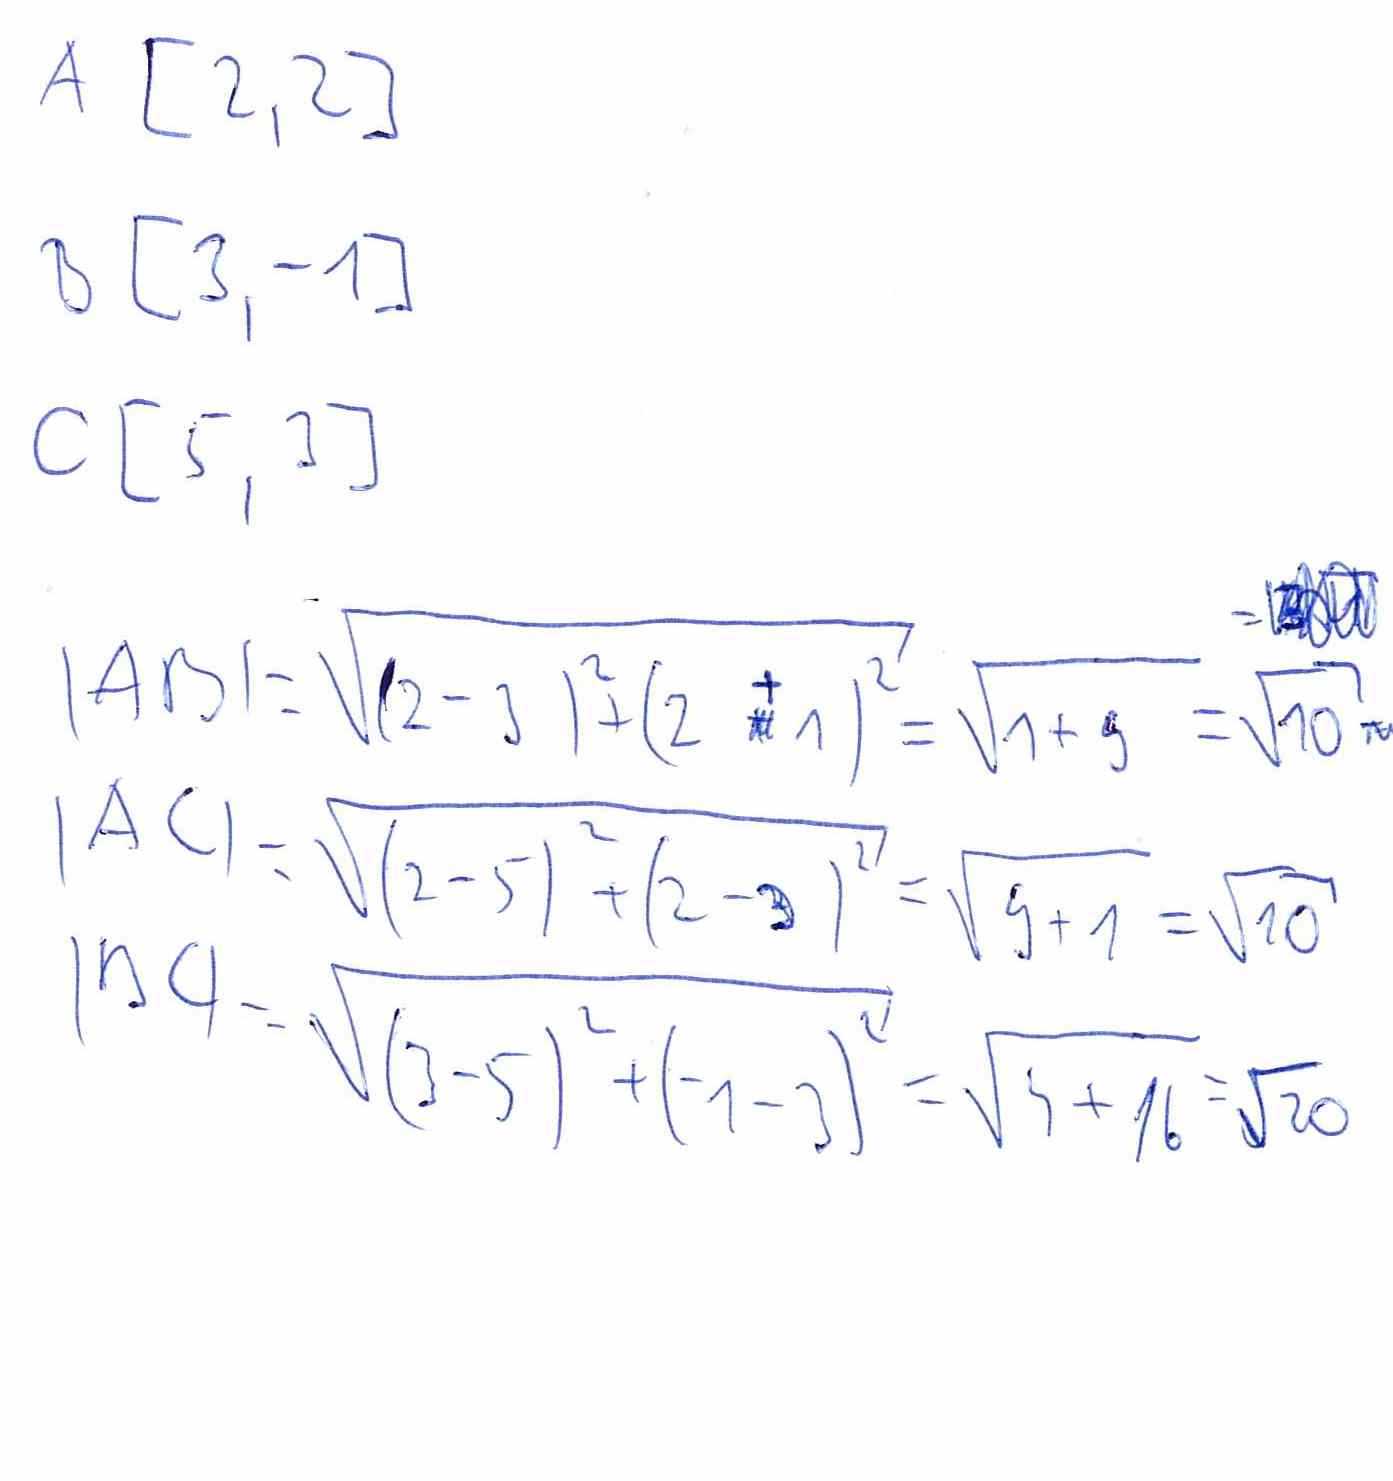 A [2,2]
B [3,-1]
C [5,3]
|AB| = √((2-3)²+(2+1)²) = √(1+9) = √10
|AC| = √((2-5)²+(2-3)²) = √(9+1) = √10
|BC| = √((3-5)²+(-1-3)²) = √(4+16) = √20